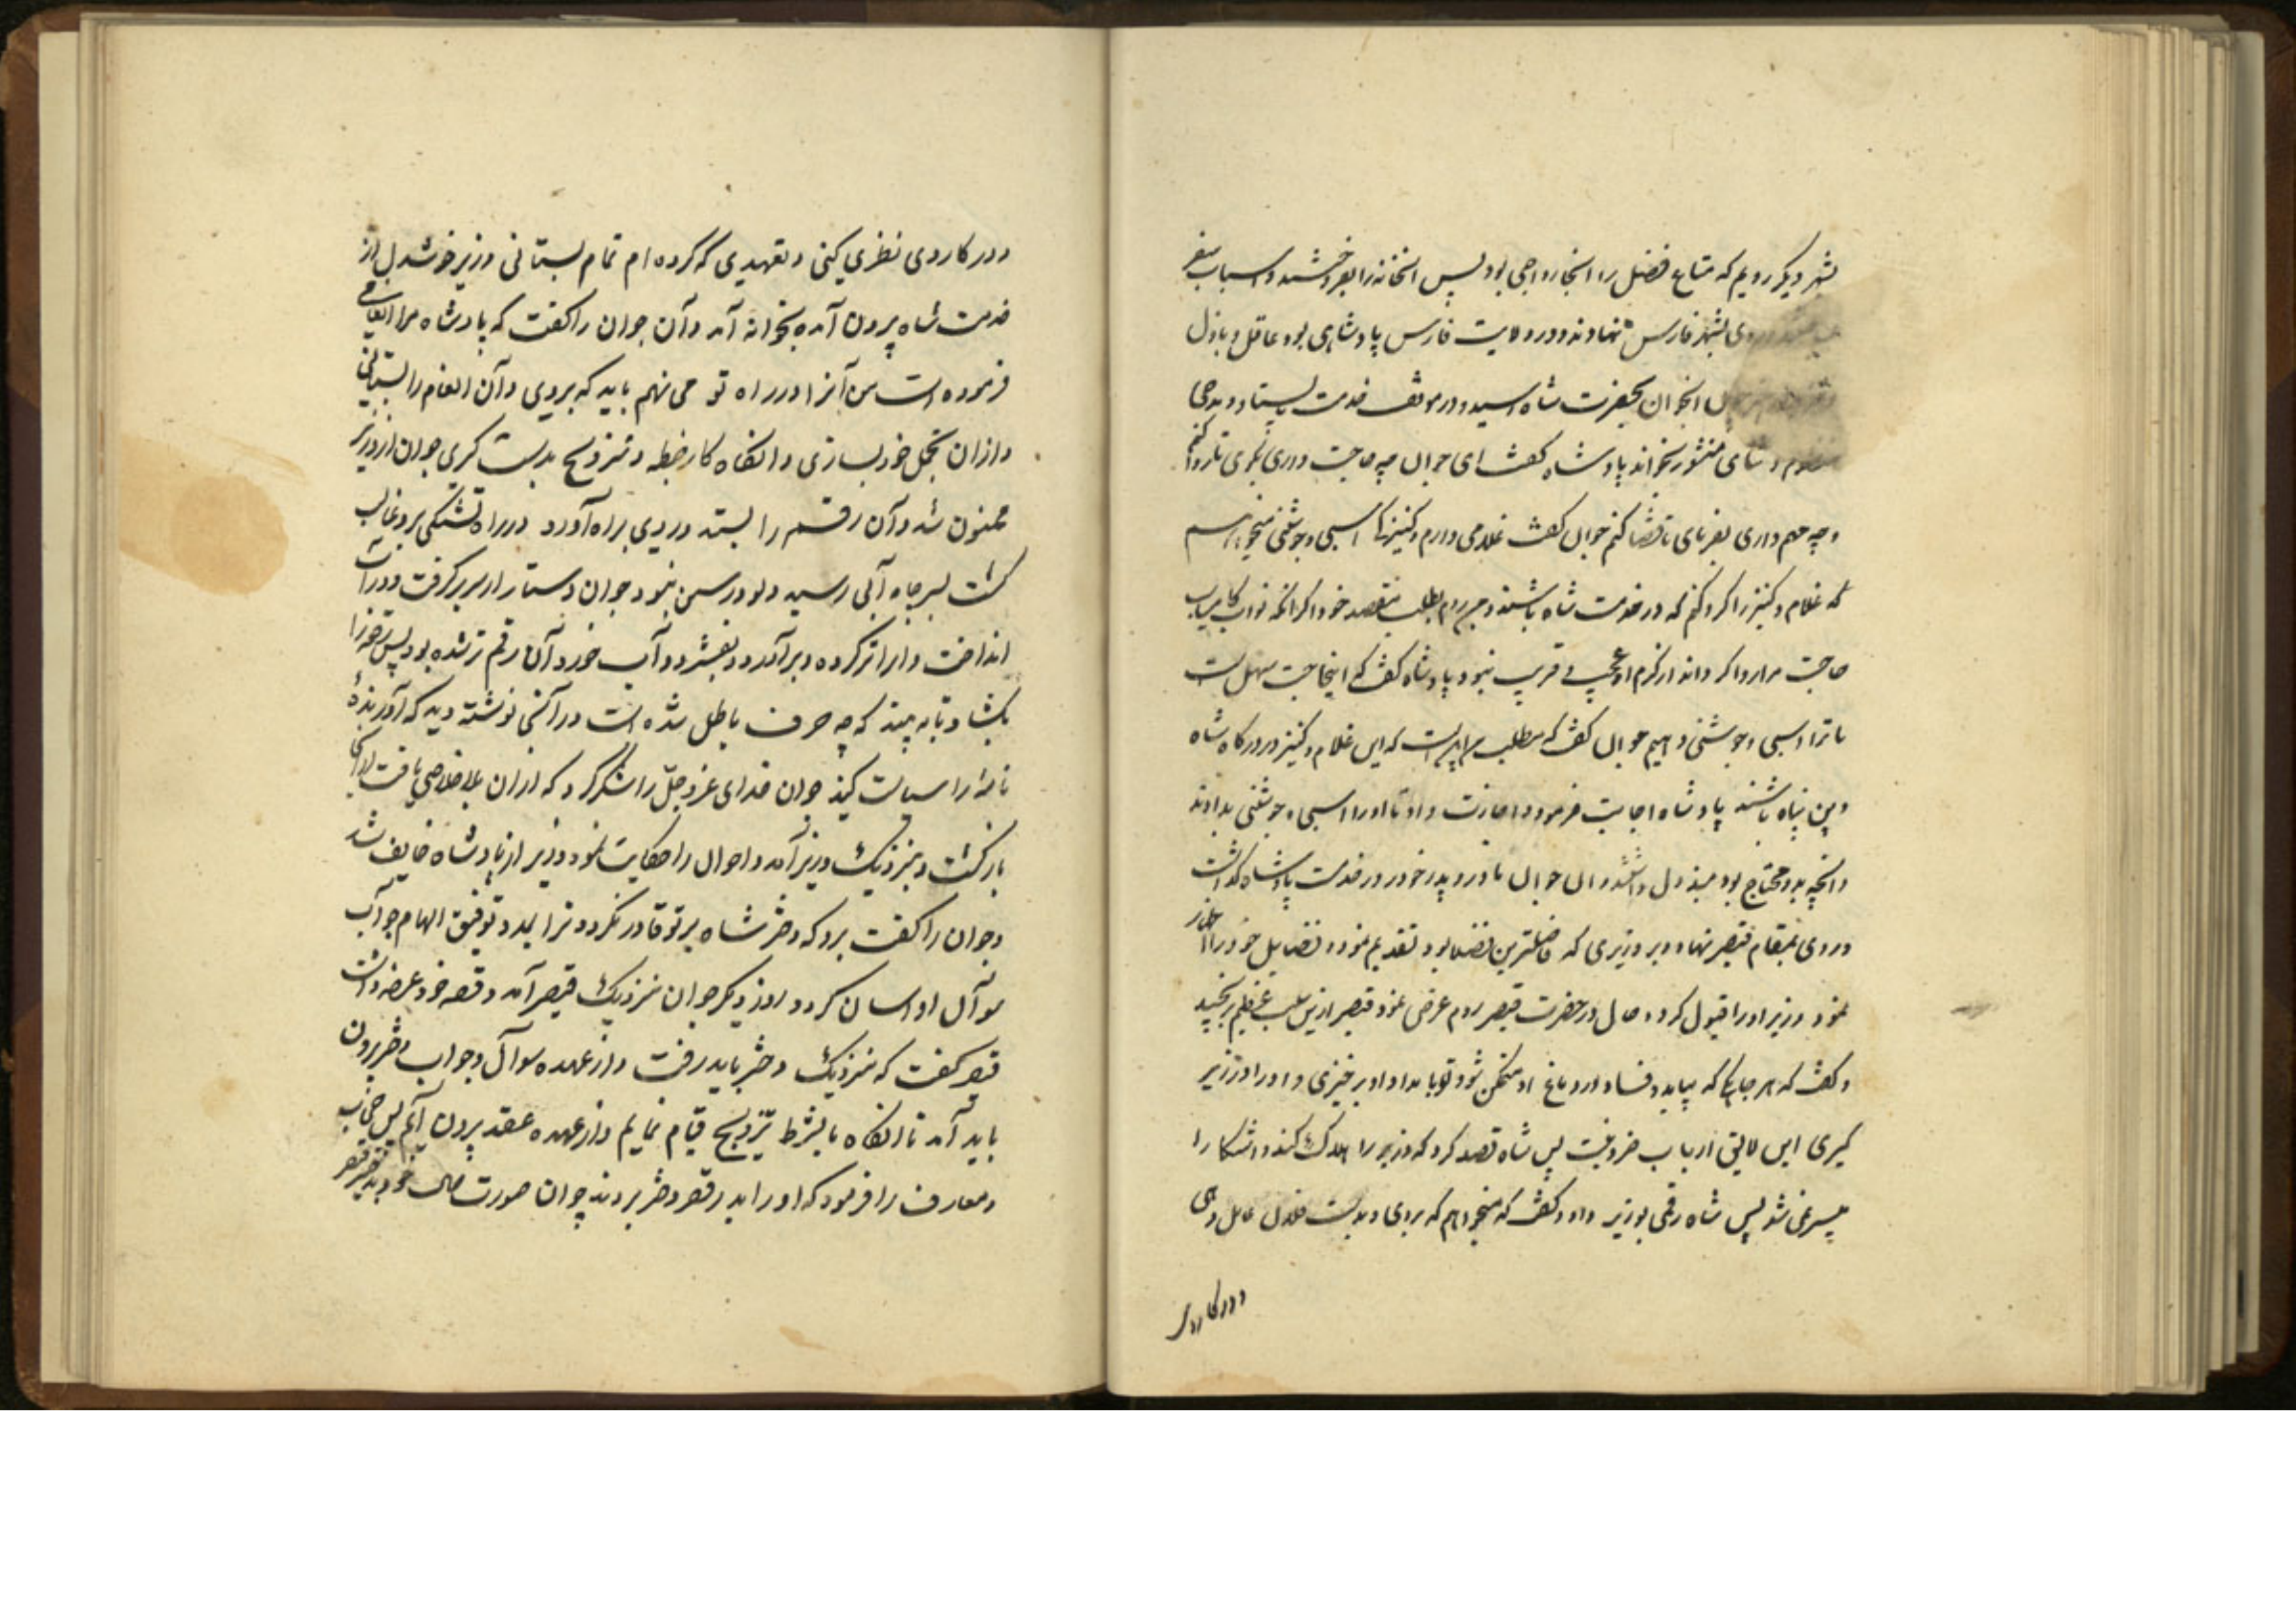 بشهر دیگر رویم که متاع فضل را آنجا رواجی بود پس آنخانه را بفروختند و اسباب سفر
روی بشهر فارس نهادند و در ولایت فارس پادشاهی بود عاقل و باذل
آنجوان بحضرت شاه رسید و در موقف خدمت بیستاد و مدحی
منظوم و ثنای منثور بخواند پادشاه کفت ای جوان چه حاجت داری بکوی تا روا کنم
و چه مهم داری بفرمای تا قضا کنم جوان کفت غلامی دارم و کنیزکی اسبی و جوشنی میخواهم
که غلام و کنیز را کرو کنم که در خدمت شاه باشند و من بروم بطلب مقصد خود اگر آنکه نواب کامیاب
حاجت مرا روا کرداند از کرم او عجب و غریب نبود پادشاه کفت که اینحاجت سهل است
ما ترا اسبی و جوشنی دهیم جوان کفت که مطلب من این است که این غلام و کنیز در درکاه شاه
دین پناه باشند پادشاه اجابت فرمود و اجازت داد تا او را اسبی و جوشنی بدادند
و آنچه بدو محتاج بود مبذول داشتند و آن جوان مادر و پدر خود در خدمت پادشاه گذاشت
و روی بمقام قیصر نهاد و بر وزیری که فاضلترین فضلا بود تقدیم نمود و فضایل خود را اظهار
نمود وزیر او را قبول کرد و حال در حضرت قیصر روم عرض نمود قیصر ازین سبب عظیم برنجید
و کفت که هر جا یکی که بیاید و فساد در دماغ او متمکن شود تو بامداد او برخیزی و او را وزیر
کیری این لایق ارباب خرد نیست پس شاه قصد کرد که وزیر را هلاک کند و آشکارا
میسر نمی شد پس شاه رقمی بوزیر داد و کفت که میخواهم که بروی و بدست فلان عامل دهی
و در کار وی
و در کار وی نظری کنی و تعهدی که کرده ام تمام بستانی وزیر خوشدل از
خدمت شاه بیرون آمده بخوانه آمد و آن جوان را کفت که پادشاه مرا انعامی
فرموده است من آنرا در راه تو می نهم باید که بروی و آن انعام را بستانی
و از ان تجمل خود بسازی و آنکاه کار خطبه و تزویج بدست کیری جوان از وزیر
ممنون شد و آن رقم را بستد و روی براه آورد در راه تشنکی برو غالب
کشت بسر چاه آبی رسید دلو و رسن نبود جوان دستار از سر برکرفت و در آب
انداخت و آنرا تر کرده و برآورد و بفشرد و آب خورد آن رقم تر شده بود پس رقم را
بکشاد تا به بیند که چه حرف باطل شده است در آنجا نوشته دید که آورنده
نامه را سیاست کنید جوان خدای عز و جل را شکر کرد که از ان بلا خلاصی یافت از آنجا
بازکشت و بنزدیک وزیر آمد و احوال را حکایت نمود وزیر از پادشاه خایف شد
و جوان را کفت برو که دختر شاه بر تو قادر نکردد و ترا بمدد توفیق الهام جواب
سوآل او آسان کردد روز دیکر جوان بنزدیک قیصر آمد و قصه خود عرضه داشت
قیصر کفت که بنزدیک دختر باید رفت و از عهده سوآل و جواب دختر برون
باید آمد تا آنکاه ما بشرط تزویج قیام نمایم و از عهده عقد بیرون آیم پس حاجب
و معارف را فرمود که او را بدر قصر دختر بردند چوان صورت حال خود بدختر قیصر